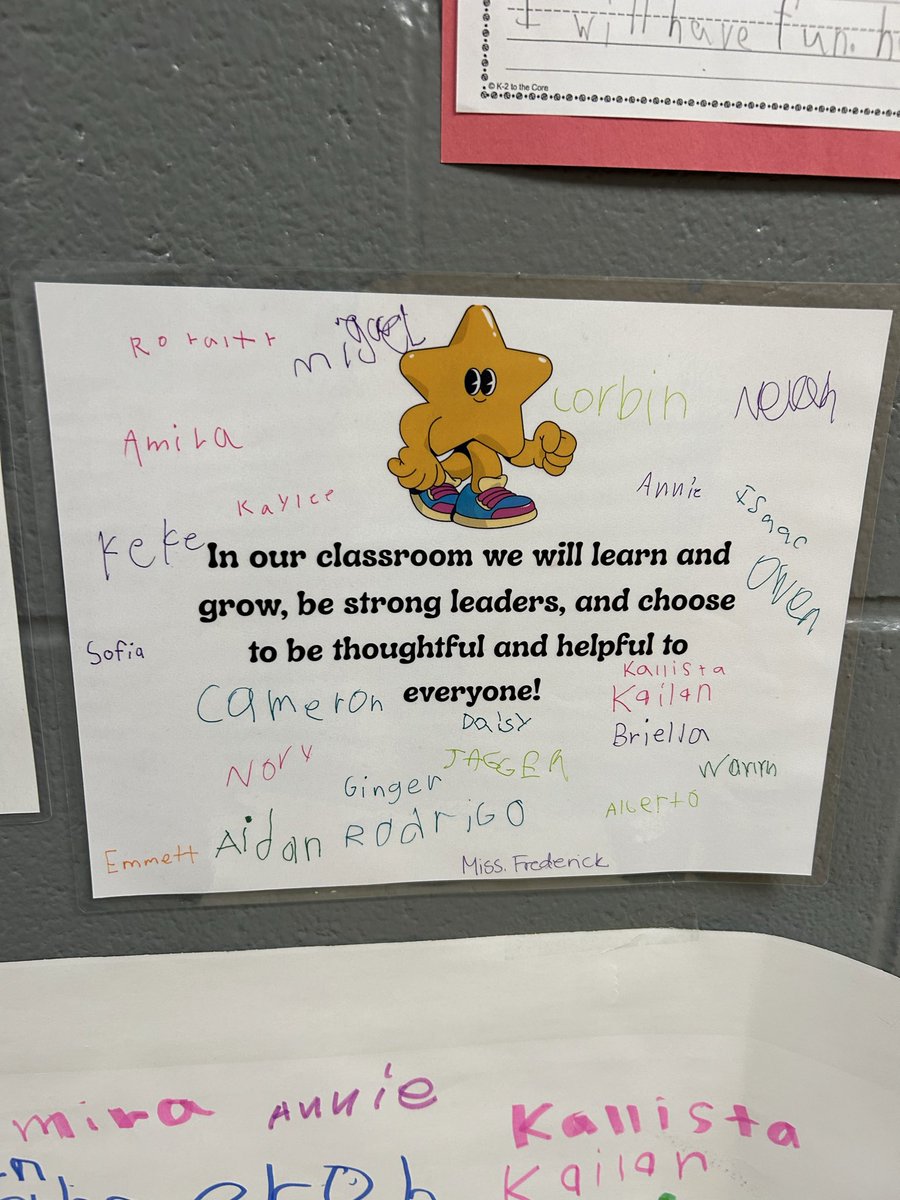 I will have fun.
© K-2 to the Core
miguel
corbin
Amira
Annie
Isaac
Kaylee
KeKe
Owen
In our classroom we will learn and
grow, be strong leaders, and choose
to be thoughtful and helpful to
everyone!
Sofia
Kallista
Kailan
Cameron
Daisy
Briella
Nory
JAGGER
Ginger
Alberto
RodriGo
Aidan
Emmett
Miss. Frederick
mira
Annie
Kallista
Kailan